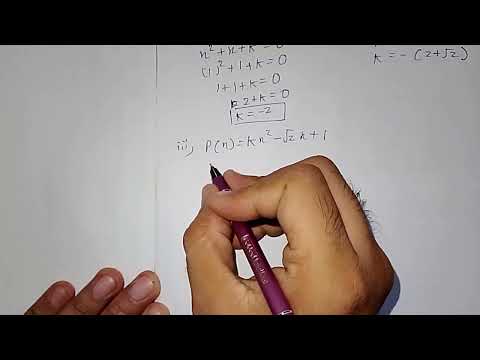 x² + x + k = 0
(1)² + 1 + k = 0
1 + 1 + k = 0
2 + k = 0
k = -2
k = - (2 + √2)
iii, P(x) = kx² - √2 x + 1